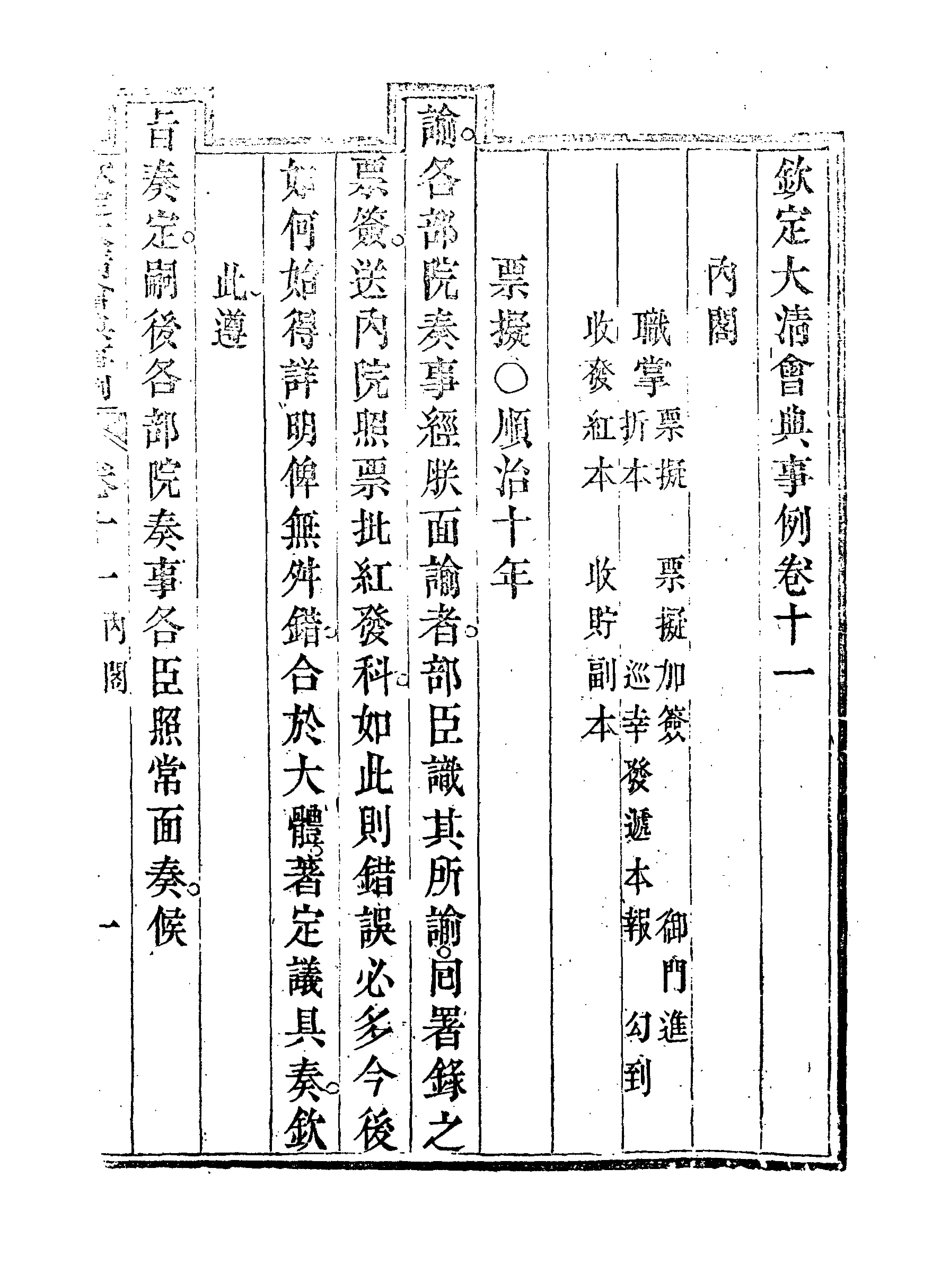 欽定大清會典事例卷十一
內閣
職掌票擬　票擬加簽　御門進
折本　巡幸發遞本報　勾到
收發紅本　收貯副本
票擬○順治十年
諭。各部院奏事經朕面諭者。部臣識其所諭。回署錄之
票簽。送內院照票批紅發科。如此則錯誤必多今後
如何始得詳明俾無舛錯。合於大體。著定議具奏。欽
此。遵
旨奏定。嗣後各部院奏事各臣照常面奏。候
卷十一 內閣 一